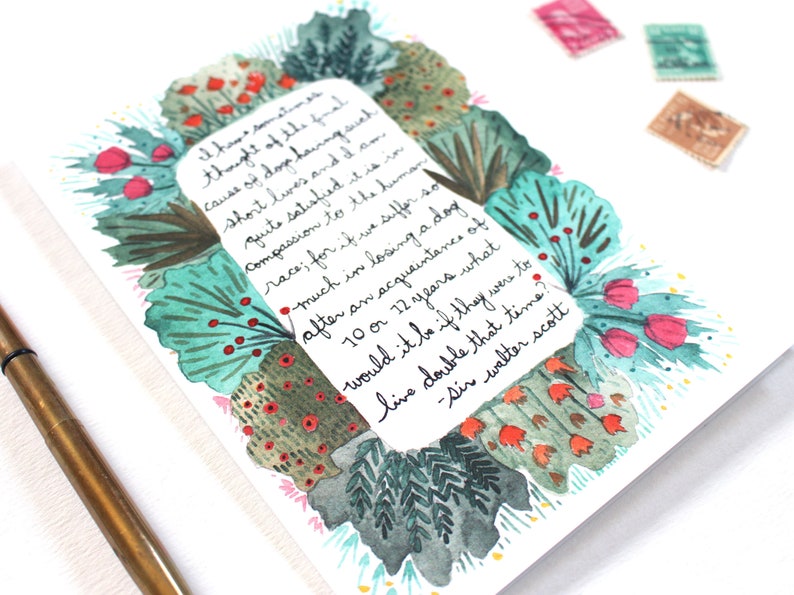 I have sometimes
thought of the final
cause of dogs having such
short lives and I am
quite satisfied it is in
compassion to the human
race; for if we suffer so
much in losing a dog
after an acquaintance of
10 or 12 years what
would it be if they were to
live double that time?
-sir walter scott